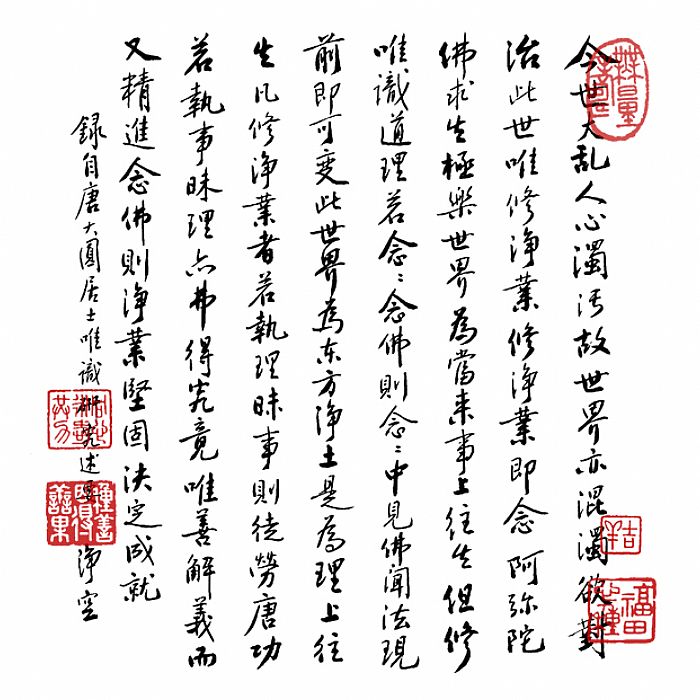 今世大乱人心濁污故世界亦混濁欲對
治此世唯修浄業修浄業即念阿弥陀
佛求生極樂世界為當来事上往生但修
唯識道理若念〻念佛則念〻中見佛聞法現
前即可变此世界為东方浄土是為理上往
生凡修浄業者若執理昧事則徒勞唐功
若執事昧理亦弗得究竟唯善解義而
又精進念佛則浄業堅固決定成就
録自唐大圓居士唯識研究述要 浄空